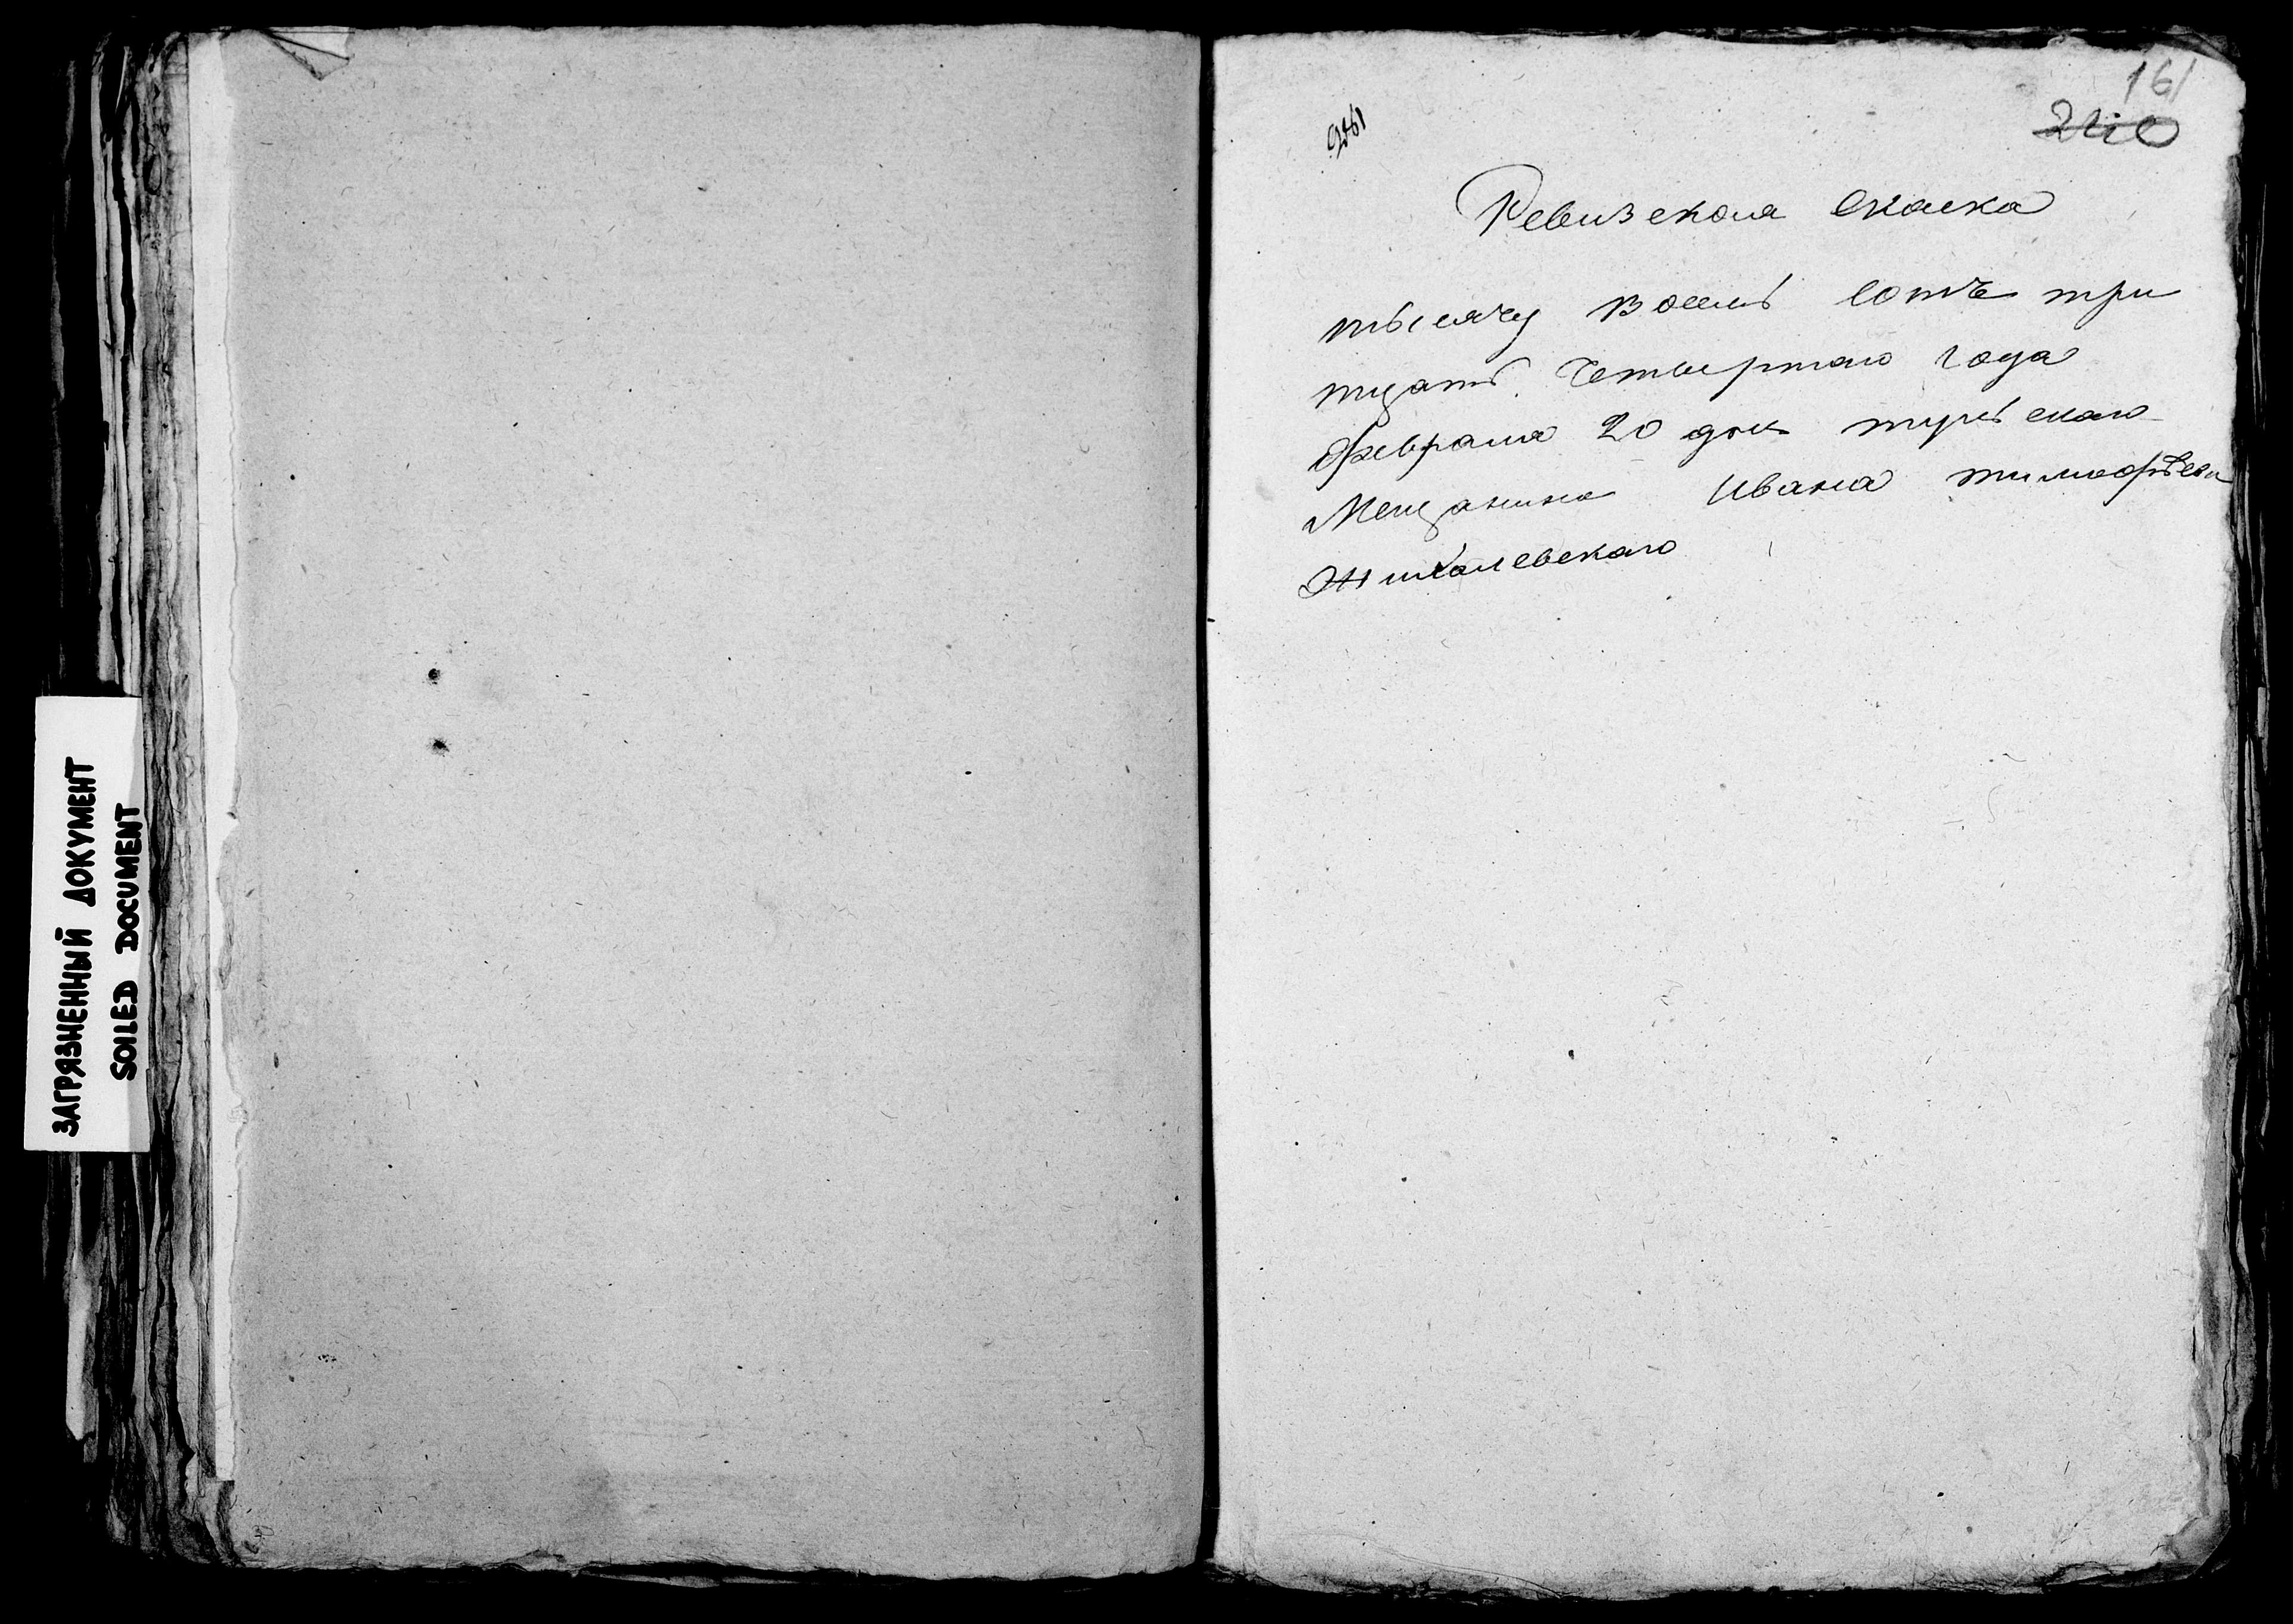 ЗАГРЯЗНЕННЫЙ ДОКУМЕНТ
SOILED DOCUMENT
161
Ревизская скаска
тысячу восемь сотъ три
тцать четвертаго года
Февраля 20 дня
Мещанина Ивана тимофѣева